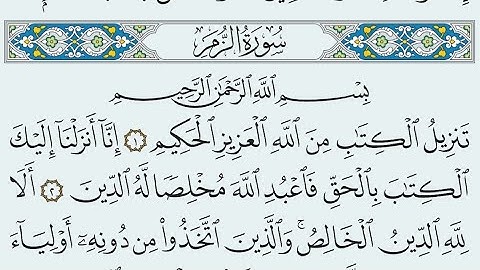 سُورَةُ الزُّمَرِ
بِسْمِ ٱللَّهِ ٱلرَّحْمَٰنِ ٱلرَّحِيمِ
تَنزِيلُ ٱلْكِتَٰبِ مِنَ ٱللَّهِ ٱلْعَزِيزِ ٱلْحَكِيمِ ١ إِنَّآ أَنزَلْنَآ إِلَيْكَ
ٱلْكِتَٰبَ بِٱلْحَقِّ فَٱعْبُدِ ٱللَّهَ مُخْلِصًا لَّهُ ٱلدِّينَ ٢ أَلَا
لِلَّهِ ٱلدِّينُ ٱلْخَالِصُ ۚ وَٱلَّذِينَ ٱتَّخَذُوا۟ مِن دُونِهِۦٓ أَوْلِيَآءَ